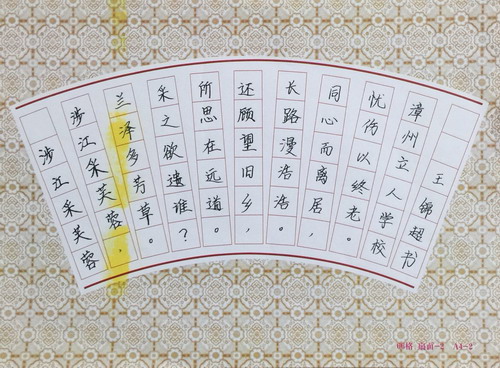 涉江采芙蓉
涉江采芙蓉，
兰泽多芳草。
采之欲遗谁？
所思在远道。
还顾望旧乡，
长路漫浩浩。
同心而离居，
忧伤以终老。
漳州立人学校
王锦超书
扇面-2 A4-2